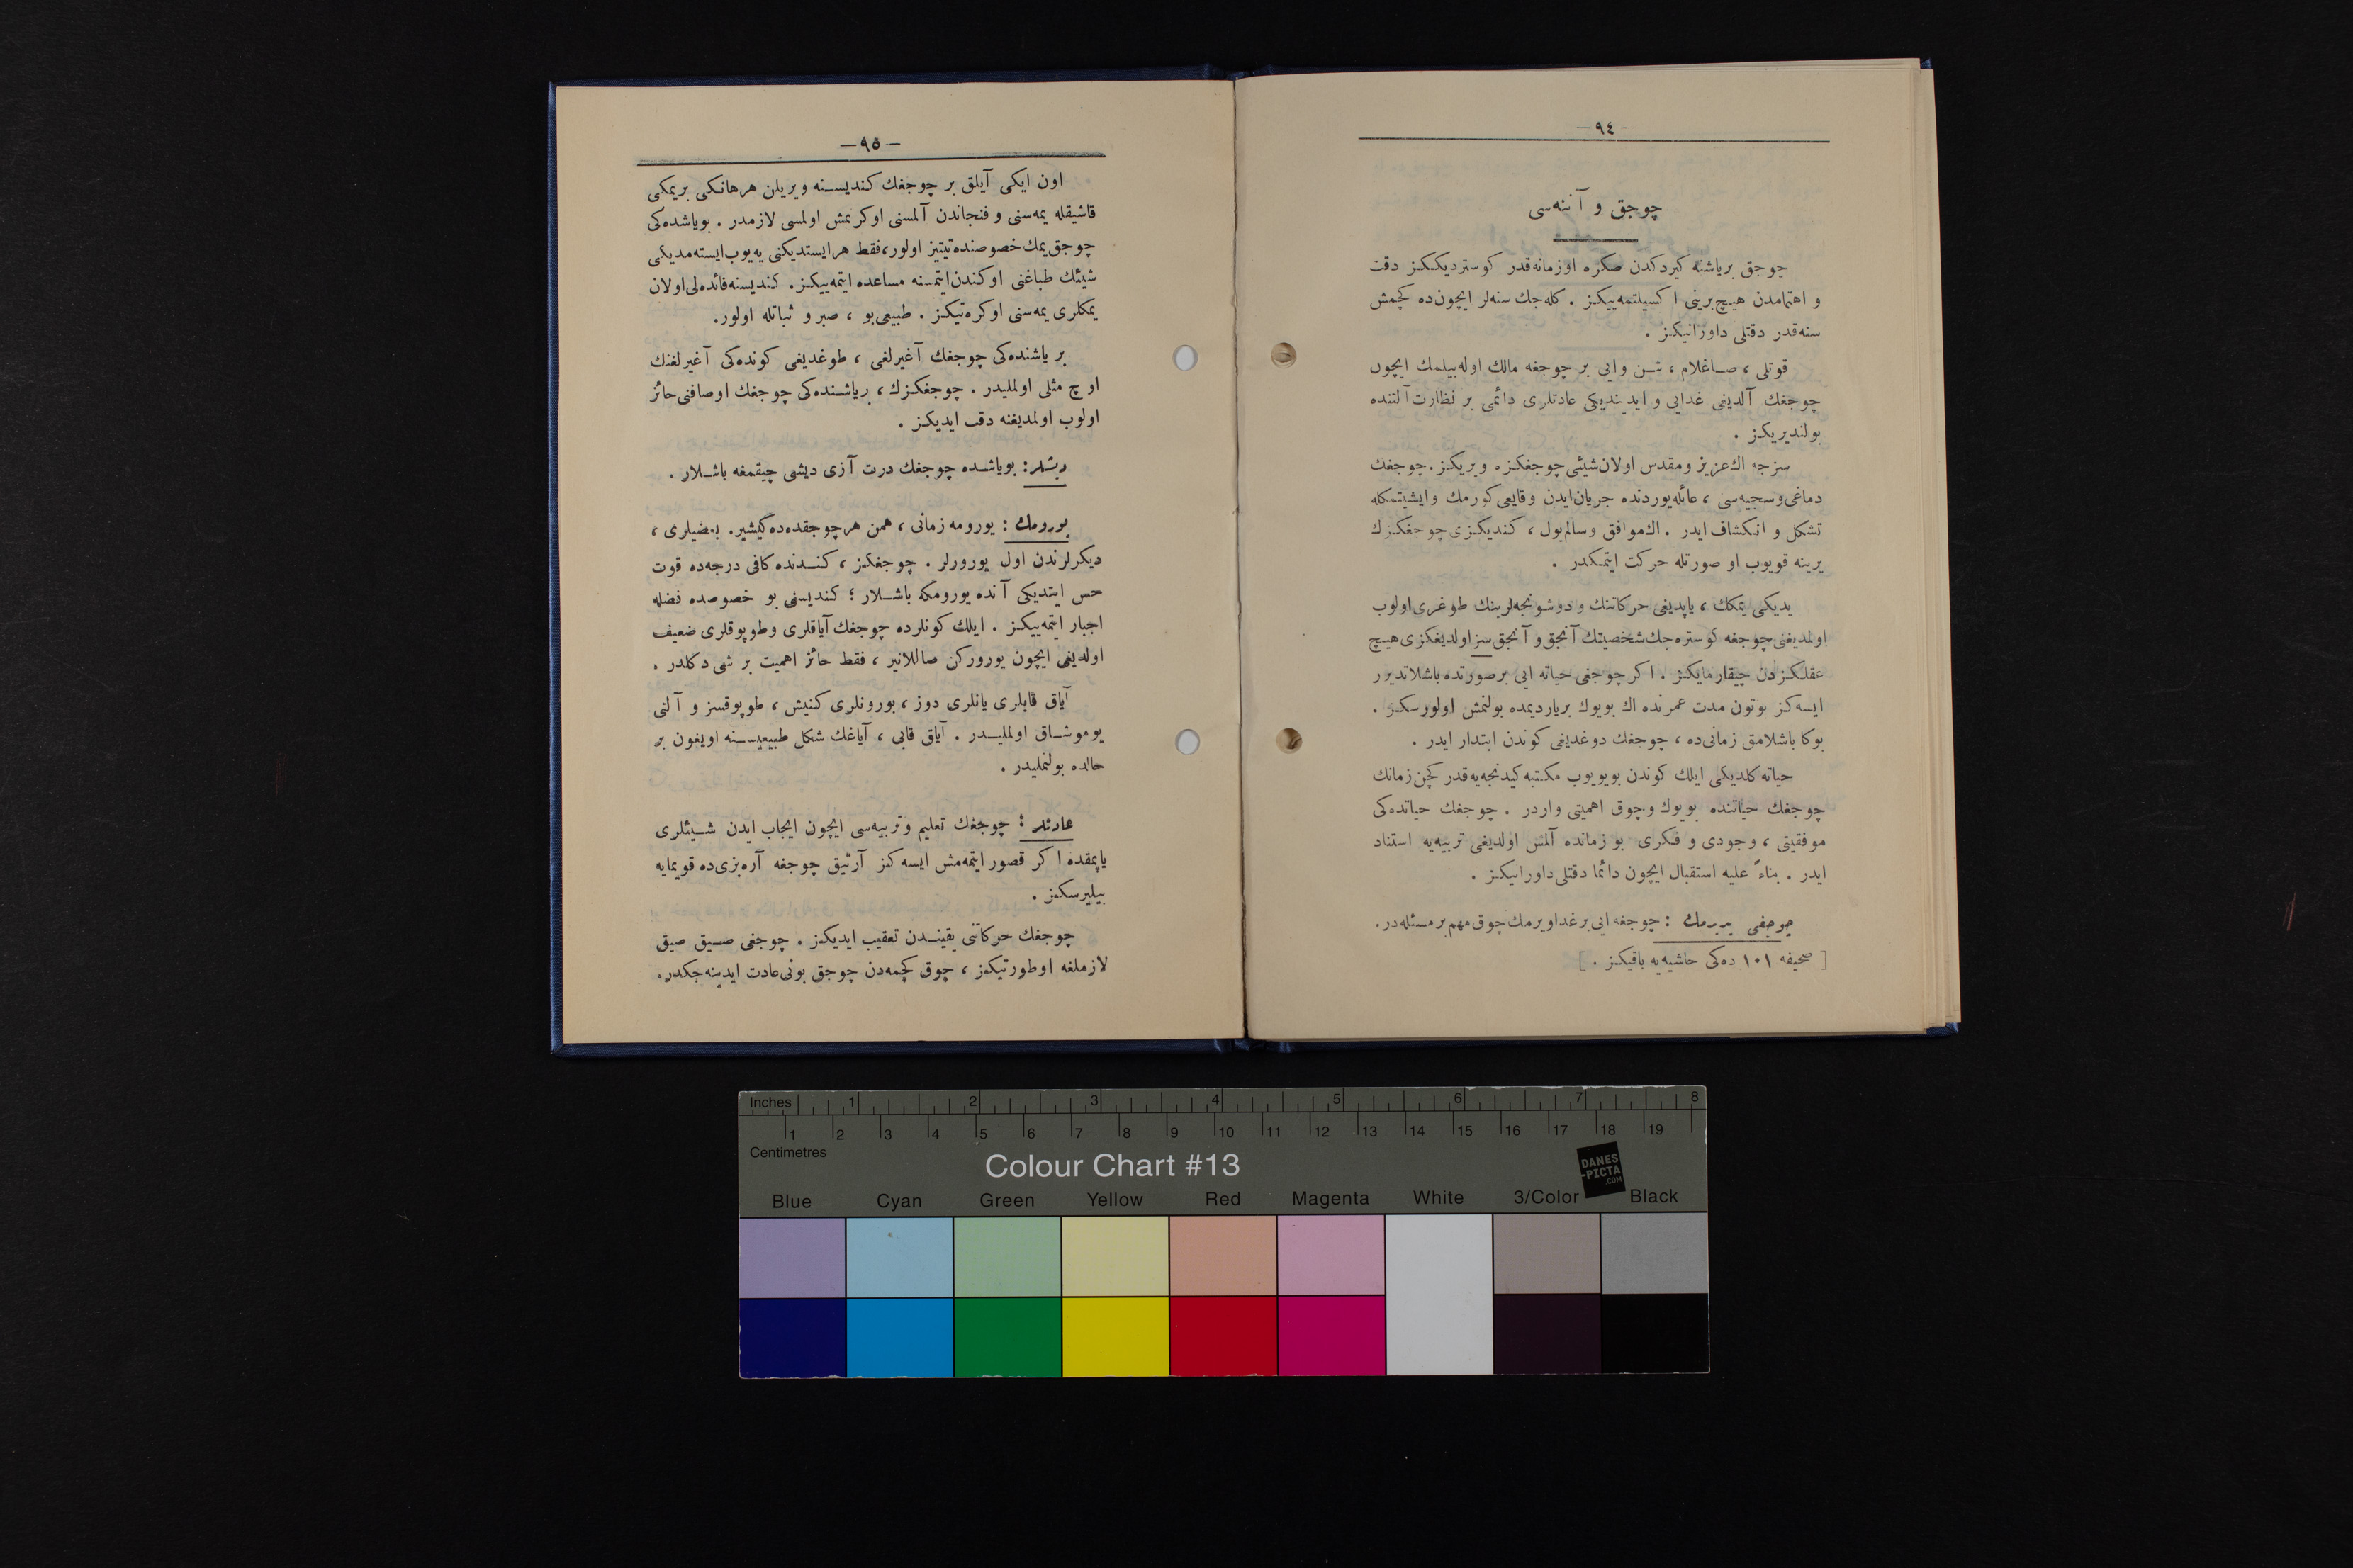 — ٩٤ —
چوجق و آننه‌سی
چوجق بریاشنه کیردکدن صکره اوزمانه‌قدر کوستردیککز دقت
و اهتمامدن هیچ برینی اکسیلتمه‌ییکز . کله‌جك سنه‌لر ایچون‌ده کچمش
سنه‌قدر دقتلی داورانیکز .
قوتلی ، صاغلام ، شن وایی بر چوجغه مالك اوله‌بیلمك ایچون
چوجغك آلدیغی غدایی و ایدیندیکی عادتلری دائمی بر نظارت آلتنده
بولندیریکز .
سزجه اك‌عزیز ومقدس اولان‌شیئی چوجغکزه ویریکز . چوجغك
دماغی وسجیه‌سی ، عائله یوردنده جریان‌ایدن وقایعی کورمك وایشیتمکله
تشکل و انکشاف ایدر . اك‌موافق وسالم‌یول ، کندیکزی چوجغکزك
یرینه قویوب او صورتله حرکت ایتمکدر .
یدیکی یمکك ، یاپدیغی حرکاتنك و دوشونجه‌لرینك طوغری اولوب
اولمدیغنی چوجغه کوستره‌جك شخصیتك آنجق و آنجق سز اولدیغکزی هیچ
عقلکزدن چیقارمایکز . اکر چوجغی حیاته ایی برصورتده باشلاتدیرر
ایسه‌کز بوتون مدت عمرنده اك بویوك بریاردیمده بولنمش اولورسکز .
بوکا باشلامق زمانی‌ده ، چوجغك دوغدیغی کوندن ابتدار ایدر .
حیاته کلدیکی ایلك کوندن بویویوب مکتبه کیدنجه‌یه‌قدر کچن زمانك
چوجغك حیاتنده بویوك وچوق اهمیتی واردر . چوجغك حیاتده‌کی
موفقیتی ، وجودی و فکری بو زمانده آلمش اولدیغی تربیه‌یه استناد
ایدر . بناءً علیه استقبال ایچون دائما دقتلی داورانیکز .
چوجغی یدیرمك : چوجغه ایی برغدا ویرمك چوق مهم برمسئله‌در .
[ صحیفه ١٠١ ده‌کی حاشیه‌یه باقیکز . ]
— ٩٥ —
اون ایکی آیلق بر چوجغك کندیسنه ویریلن هرهانکی بریمکی
قاشیقله یمه‌سنی و فنجاندن آلمسنی اوکرنمش اولمسی لازمدر . بویاشده‌کی
چوجق یمك خصوصنده تیتیز اولور، فقط هرایستدیکنی یه‌یوب ایسته‌مدیکی
شیئك طباغنی اوکندن ایتمسنه مساعده ایتمه‌ییکز . کندیسنه فائده‌لی اولان
یمکلری یمه‌سنی اوکره‌تیکز . طبیعی بو ، صبر و ثباتله اولور.
بر یاشنده‌کی چوجغك آغیرلغی ، طوغدیغی کونده‌کی آغیرلغنك
اوچ مثلی اولملیدر . چوجغکزك ، بریاشنده‌کی چوجغك اوصافنی حائز
اولوب اولمدیغنه دقت ایدیکز .
دیشلر : بویاشده چوجغك درت آزی دیشی چیقمغه باشلار .
یورومك : یورومه زمانی ، همن هرچوجقده ده‌کیشیر. بعضیلری ،
دیکرلرندن اول یورورلر . چوجغکز ، کندنده کافی درجه‌ده قوت
حس ایتدیکی آنده یورومکه باشلار ؛ کندیسنی بو خصوصده فضله
اجبار ایتمه‌ییکز . ایلك کونلرده چوجغك آیاقلری وطوپوقلری ضعیف
اولدیغی ایچون یورورکن صاللانیر ، فقط حائز اهمیت بر شی دکلدر .
آیاق قابلری یانلری دوز ، بورونلری کنیش ، طوپوقسز و آلتی
یوموشاق اولملیدر . آیاق قابی ، آیاغك شکل طبیعیسنه اویغون بر
حالده بولنملیدر .
عادتلر : چوجغك تعلیم وتربیه‌سی ایچون ایجاب ایدن شیئلری
یاپمقده اکر قصور ایتمه‌مش ایسه‌کز آرتیق چوجغه آره‌بزی‌ده قویمایه
بیلیرسکز .
چوجغك حرکاتنی یقیندن تعقیب ایدیکز . چوجغی صیق صیق
لازملغه اوطورتیکز ، چوق کچمه‌دن چوجق بونی عادت ایدینه‌جکدر.
Inches 1 2 3 4 5 6 7 8
1 2 3 4 5 6 7 8 9 10 11 12 13 14 15 16 17 18 19
Centimetres
Colour Chart #13
DANES
-PICTA
.COM
Blue Cyan Green Yellow Red Magenta White 3/Color Black